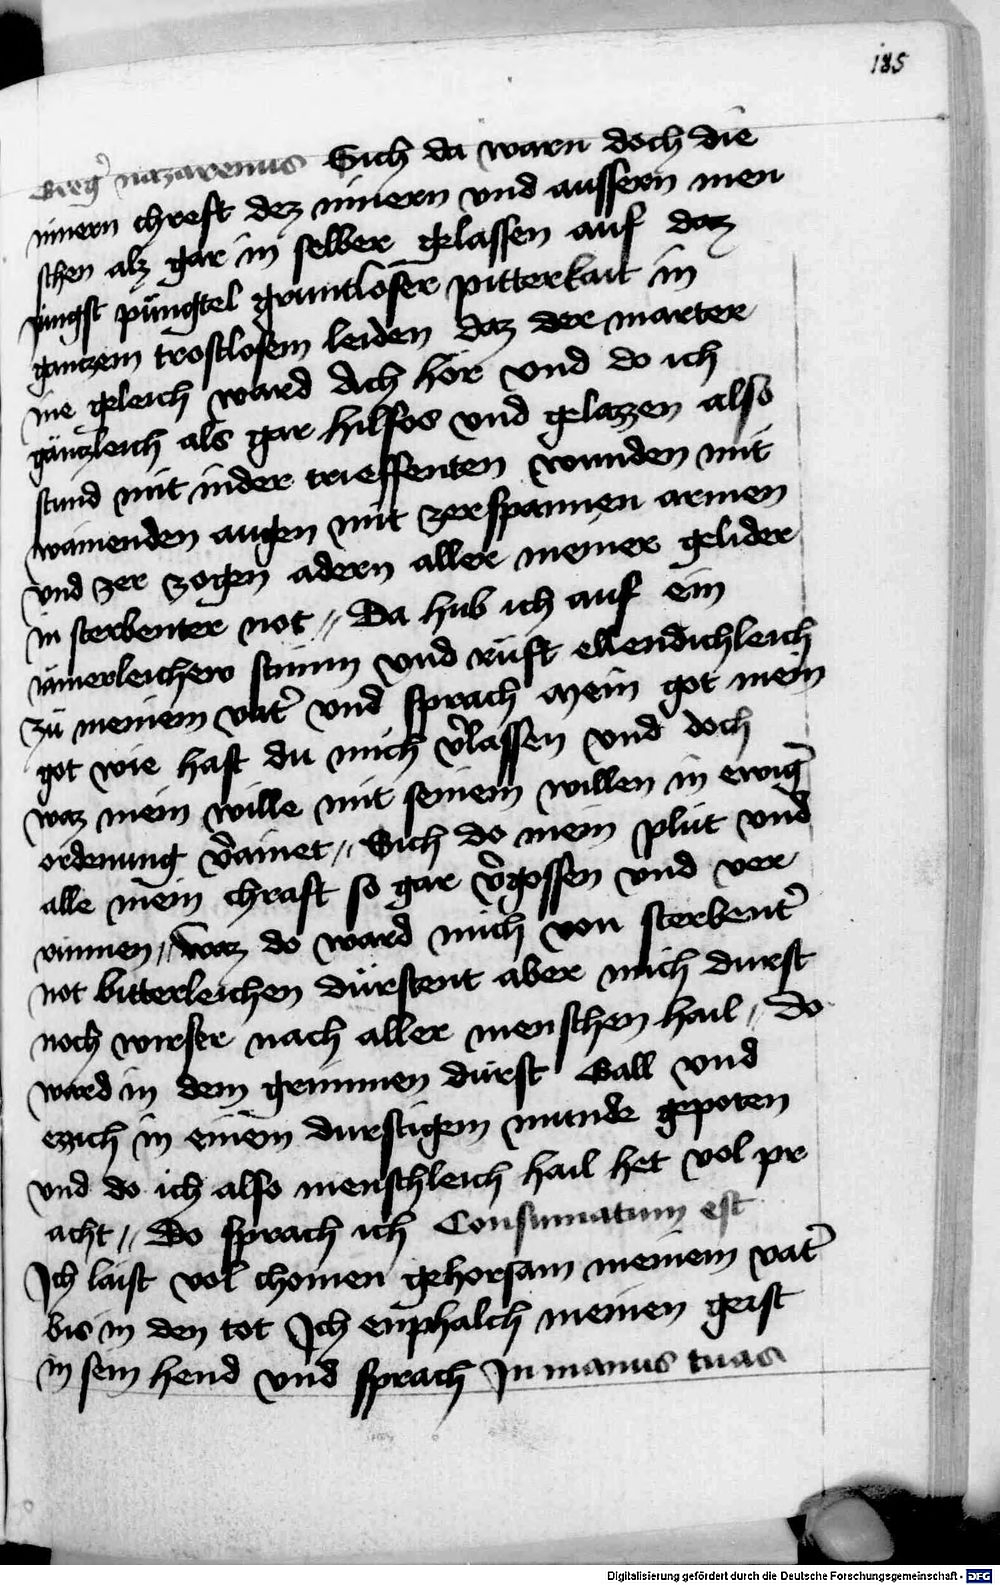 185
Greg' nazarenus Sich da warn doch die
innern chreft dez innern vnd aussern men
schen alz gar in selber gelassen auf daz
jungst püngtel gruntloser pitterkait in
ganczem trostlosem leiden daz der marter
nie geleich ward Ach hör vnd do ich
gänczleich als gar hilflos vnd gelazzen also
stund mit nider trieffenten wunden mit
wainenden augen mit zerspannen armen
vnd zer zogen adern aller meiner gelider
in sterbenter not // Da hub ich auf ein
iämerleichew stimm vnd rüft ellendichleich
zü meinem vat' vnd sprach Mein got mein
got wie hast du mich v'lassen vnd doch
waz mein wille mit seinem willen in ewig'
ordenung v'ainet // Sich do mein plüt vnd
alle mein chraft so gar v'gossen vnd ver
runnen // waz do ward mich von sterbent'
not bitterleichen dürstent aber mich durst
noch wirser nach aller menschen hail / do
ward in dem grimmen dürst Gall vnd
ezzich in einem durstigem munde gepoten
vnd do ich also menschleich hail het vol pr
acht // Do sprach ich Consummatum est
Ich laist vol chomen gehorsam meinem vat'
bis in den tot Ich enphalch meinen geist
in sein hend vnd sprach In manus tuas
Digitalisierung gefördert durch die Deutsche Forschungsgemeinschaft - DFG